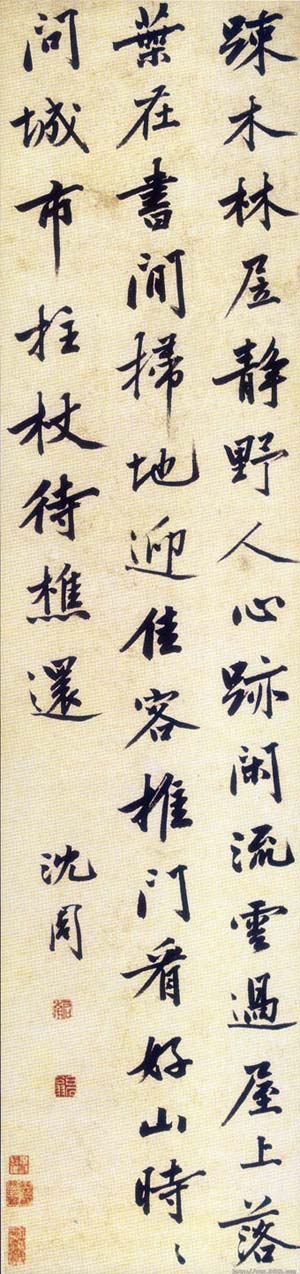 踈木林居静野人心跡閑流雲過屋上落
葉在書間掃地迎佳客推門看好山時〻
問城市拄杖待樵還
沈周